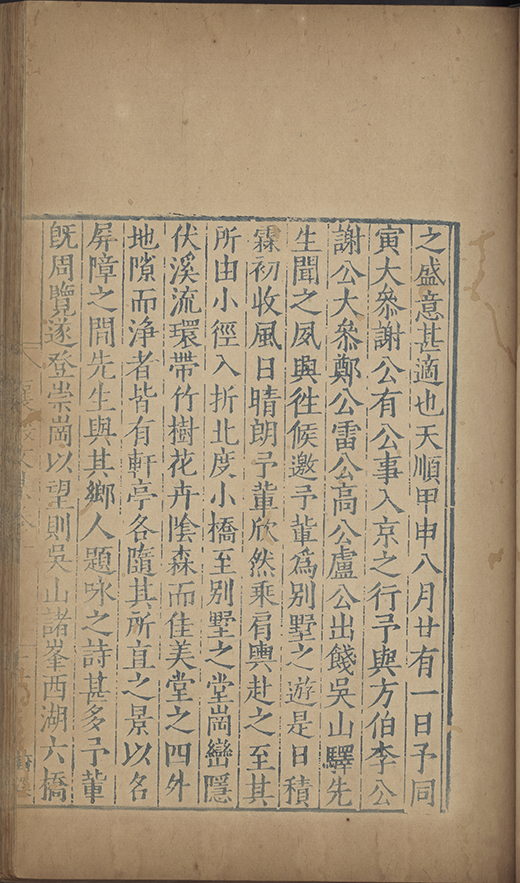 之盛意甚適也天順甲申八月廿有一日予同
寅大叅謝公有公事入京之行予與方伯李公
謝公大叅鄭公雷公高公盧公出餞吳山驛先
生聞之夙興徃候邀予輩爲別墅之遊是日積
霖初收風日晴朗予輩欣然乘肩輿赴之至其
所由小徑入折北度小橋至別墅之堂崗巒隱
伏溪流環帶竹樹花卉陰森而佳美堂之四外
地隙而浄者皆有軒亭各隨其所直之景以名
屏障之間先生與其鄉人題咏之詩甚多予輩
旣周覽遂登崇崗以望則吳山諸峯西湖六橋